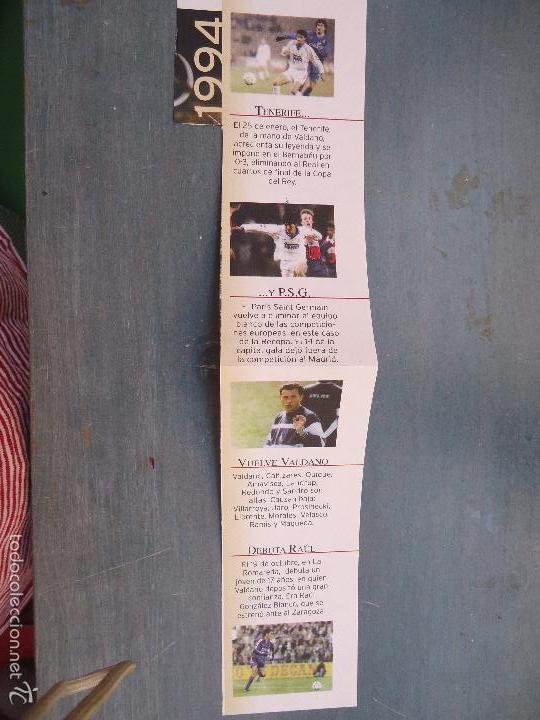 1994
TENERIFE...
El 25 de enero, el Tenerife,
de la mano de Valdano,
acrecienta su leyenda y se
impone en el Bernabéu por
0-3, eliminando al Real en
cuartos de final de la Copa
del Rey.
...Y P.S.G.
París Saint Germain
vuelve a eliminar al equipo
blanco de las competicio-
nes europeas, en este caso
de la Recopa. El 14 de la
capital gala dejó fuera de
la competición al Madrid.
VUELVE VALDANO
Valdano, Cañizares, Quique,
Amavisca, Laudrup,
Redondo y Sandro son
altas. Causan baja:
Villarroya, Jaro, Prosinecki,
Llorente, Morales, Velasco,
Ramis y Maqueda.
DEBUTA RAÚL
El 19 de octubre, en La
Romareda, debuta un
joven de 17 años, en quien
Valdano depositó una gran
confianza. Era Raúl
González Blanco, que se
estrenó ante el Zaragoza.
todocoleccion.net